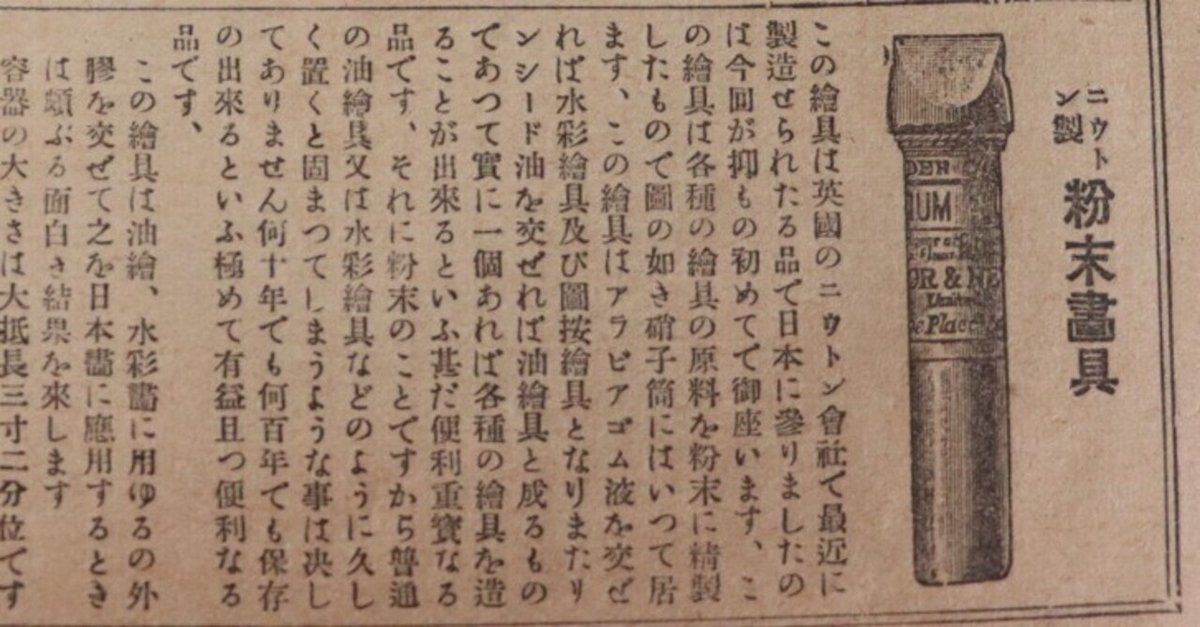 ニウトン製
粉末畵具
DER C
IUM
OR & NE
Place
この繪具は英國のニウトン會社で最近に
製造せられたる品で日本に參りましたの
は今回が抑もの初めてで御座います、こ
の繪具は各種の繪具の原料を粉末に精製
したもので圖の如き硝子筒にはいつて居
ます、この繪具はアラビアゴム液を交ぜ
れば水彩繪具及び圖按繪具となりまたリ
ンシード油を交ぜれば油繪具と成るもの
であつて實に一個あれば各種の繪具を造
ることが出來るといふ甚だ便利重寳なる
品です、それに粉末のことですから普通
の油繪具又は水彩繪具などのように久し
く置くと固まつてしまうような事は决し
てありません何十年でも何百年でも保存
の出來るといふ極めて有益且つ便利なる
品です、
この繪具は油繪、水彩畵に用ゆるの外
膠を交ぜて之を日本畵に應用するとき
は頗ぶる面白き結果を來します
容器の大きさは大抵長三寸二分位です